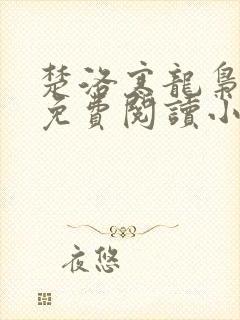 楚洛寒龍梟
免費閱讀小
夜悠